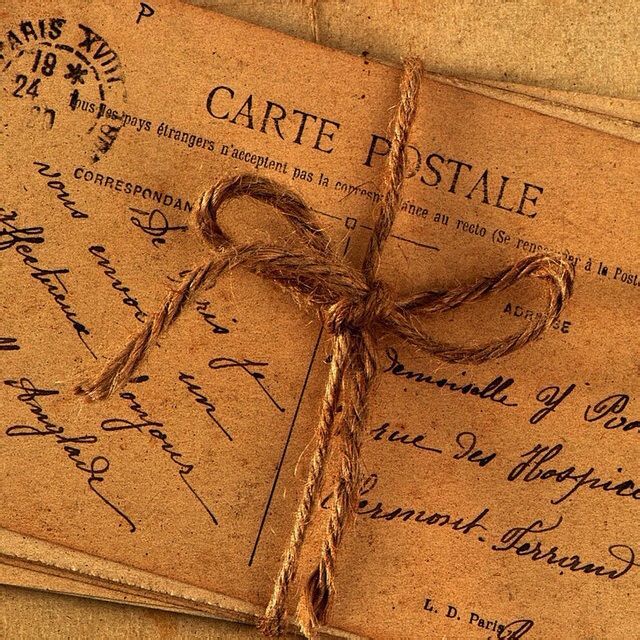 P
PARIS XVIII
18 *
24
CARTE POSTALE
Tous les pays étrangers n'acceptent pas la correspondance au recto (Se renseigner à la Poste
CORRESPONDAN
ADRESSE
De Paris je
vous envoi un
affectueux toujours
Anglade
demoiselle Y
rue des Hospice
Clermont-Ferrand
L. D. Paris